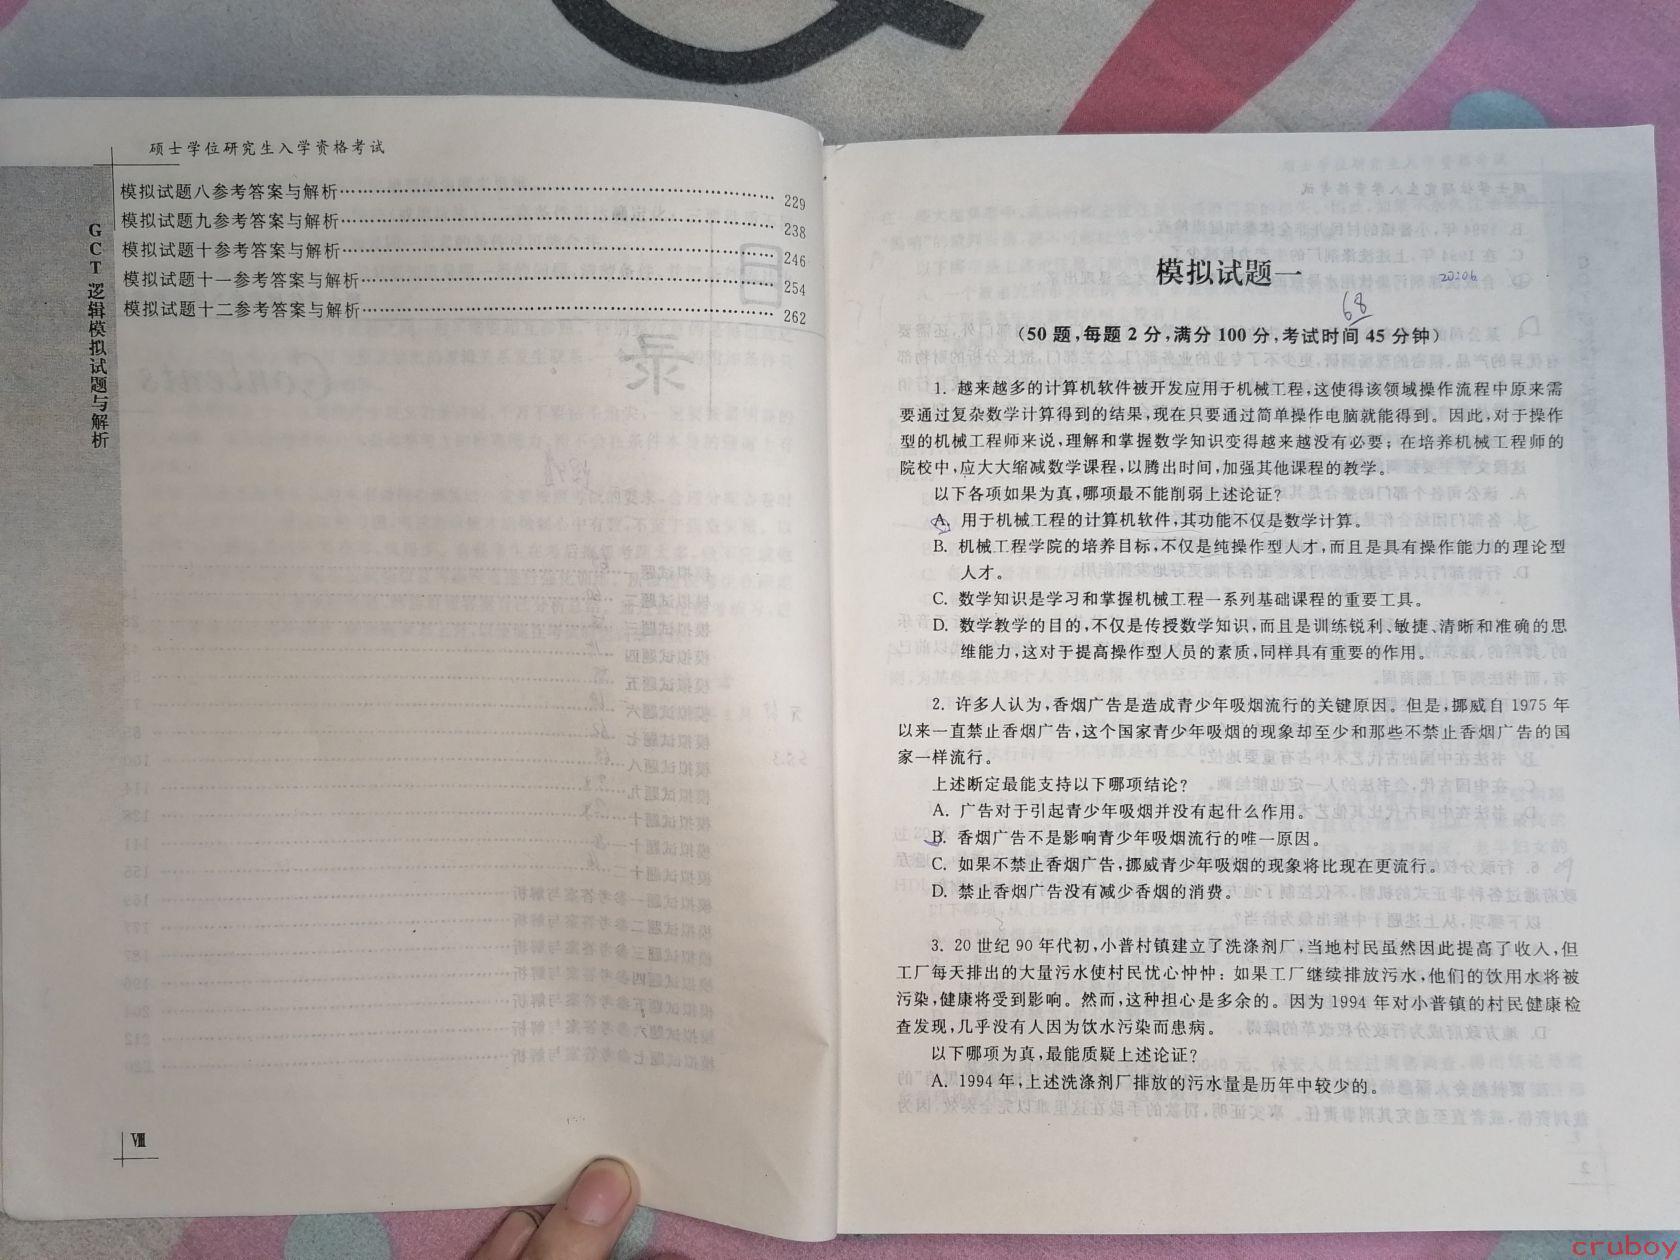 硕士学位研究生入学资格考试
GCT逻辑模拟试题与解析
模拟试题八参考答案与解析 229
模拟试题九参考答案与解析 238
模拟试题十参考答案与解析 246
模拟试题十一参考答案与解析 254
模拟试题十二参考答案与解析 262
Ⅷ
模拟试题一
68
(50题,每题2分,满分100分,考试时间45分钟)
1. 越来越多的计算机软件被开发应用于机械工程,这使得该领域操作流程中原来需
要通过复杂数学计算得到的结果,现在只要通过简单操作电脑就能得到。因此,对于操作
型的机械工程师来说,理解和掌握数学知识变得越来越没有必要;在培养机械工程师的
院校中,应大大缩减数学课程,以腾出时间,加强其他课程的教学。
以下各项如果为真,哪项最不能削弱上述论证?
A. 用于机械工程的计算机软件,其功能不仅是数学计算。
B. 机械工程学院的培养目标,不仅是纯操作型人才,而且是具有操作能力的理论型
人才。
C. 数学知识是学习和掌握机械工程一系列基础课程的重要工具。
D. 数学教学的目的,不仅是传授数学知识,而且是训练锐利、敏捷、清晰和准确的思
维能力,这对于提高操作型人员的素质,同样具有重要的作用。
2. 许多人认为,香烟广告是造成青少年吸烟流行的关键原因。但是,挪威自1975年
以来一直禁止香烟广告,这个国家青少年吸烟的现象却至少和那些不禁止香烟广告的国
家一样流行。
上述断定最能支持以下哪项结论?
A. 广告对于引起青少年吸烟并没有起什么作用。
B. 香烟广告不是影响青少年吸烟流行的唯一原因。
C. 如果不禁止香烟广告,挪威青少年吸烟的现象将比现在更流行。
D. 禁止香烟广告没有减少香烟的消费。
3. 20世纪90年代初,小普村镇建立了洗涤剂厂,当地村民虽然因此提高了收入,但
工厂每天排出的大量污水使村民忧心忡忡:如果工厂继续排放污水,他们的饮用水将被
污染,健康将受到影响。然而,这种担心是多余的。因为1994年对小普镇的村民健康检
查发现,几乎没有人因为饮水污染而患病。
以下哪项为真,最能质疑上述论证?
A. 1994年,上述洗涤剂厂排放的污水量是历年中较少的。
cruboy